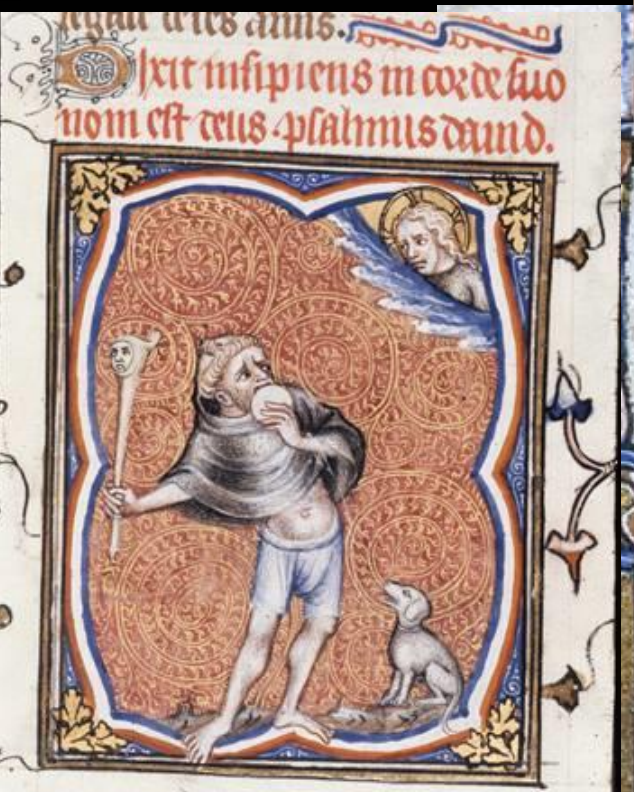 Dixit insipiens in corde suo
non est deus. psalmus dauid.